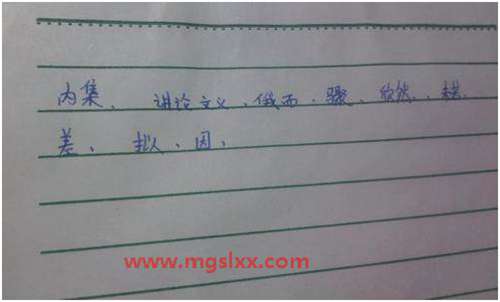 内集、讲论文义、俄而、骤、欣然、相
差、拟、因、
www.mgslxx.com